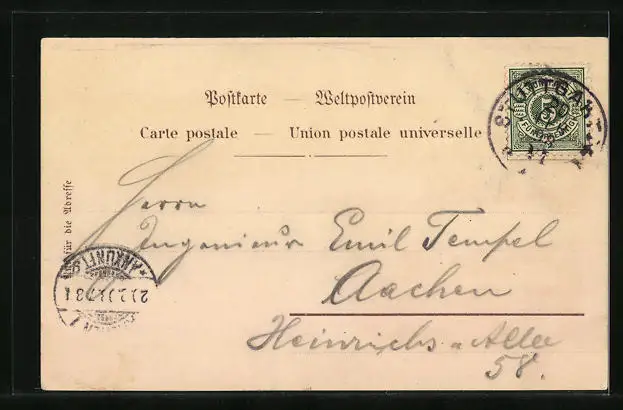 Postkarte — Weltpostverein
Carte postale — Union postale universelle
Nur für die Adresse
STUTTGART
FÜNF PFENNIG
Herrn
Ingenieur Emil Tempel
Aachen
Heinrichs-Allee
58.
ANKUNFT